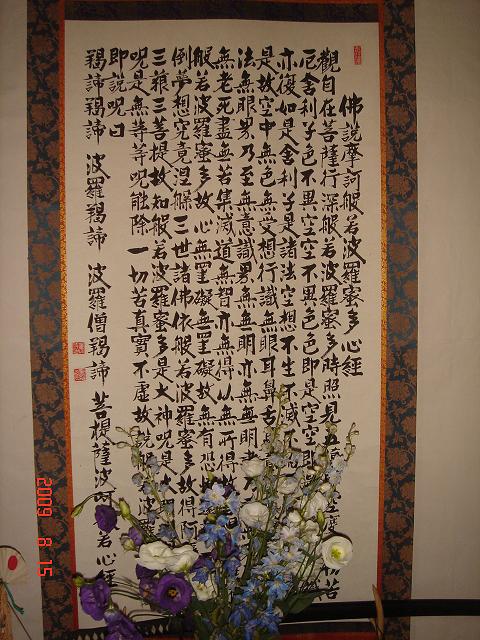 佛說摩訶般若波羅蜜多心經
觀自在菩薩行深般若波羅蜜多時照見五空度苦
厄舍利子色不異空空不異色色即是空空即
亦復如是舍利子是諸法空想不生不滅不
是故空中無色無受想行識無眼耳鼻舌
法無眼界乃至無意識界無無明亦無無明盡乃
無老死盡無苦集滅道無智亦無得以無所得故
般若波羅蜜多故心無罣礙無罣礙故無有恐
倒夢想究竟涅槃三世諸佛依般若波羅蜜多故得阿
三藐三菩提故知般若波羅蜜多是大神呪是大明
呪是無等等呪能除一切苦真實不虛故說般波羅
即說呪曰
羯諦羯諦 波羅羯諦 波羅僧羯諦 菩提薩婆訶若心經
2009 8 15